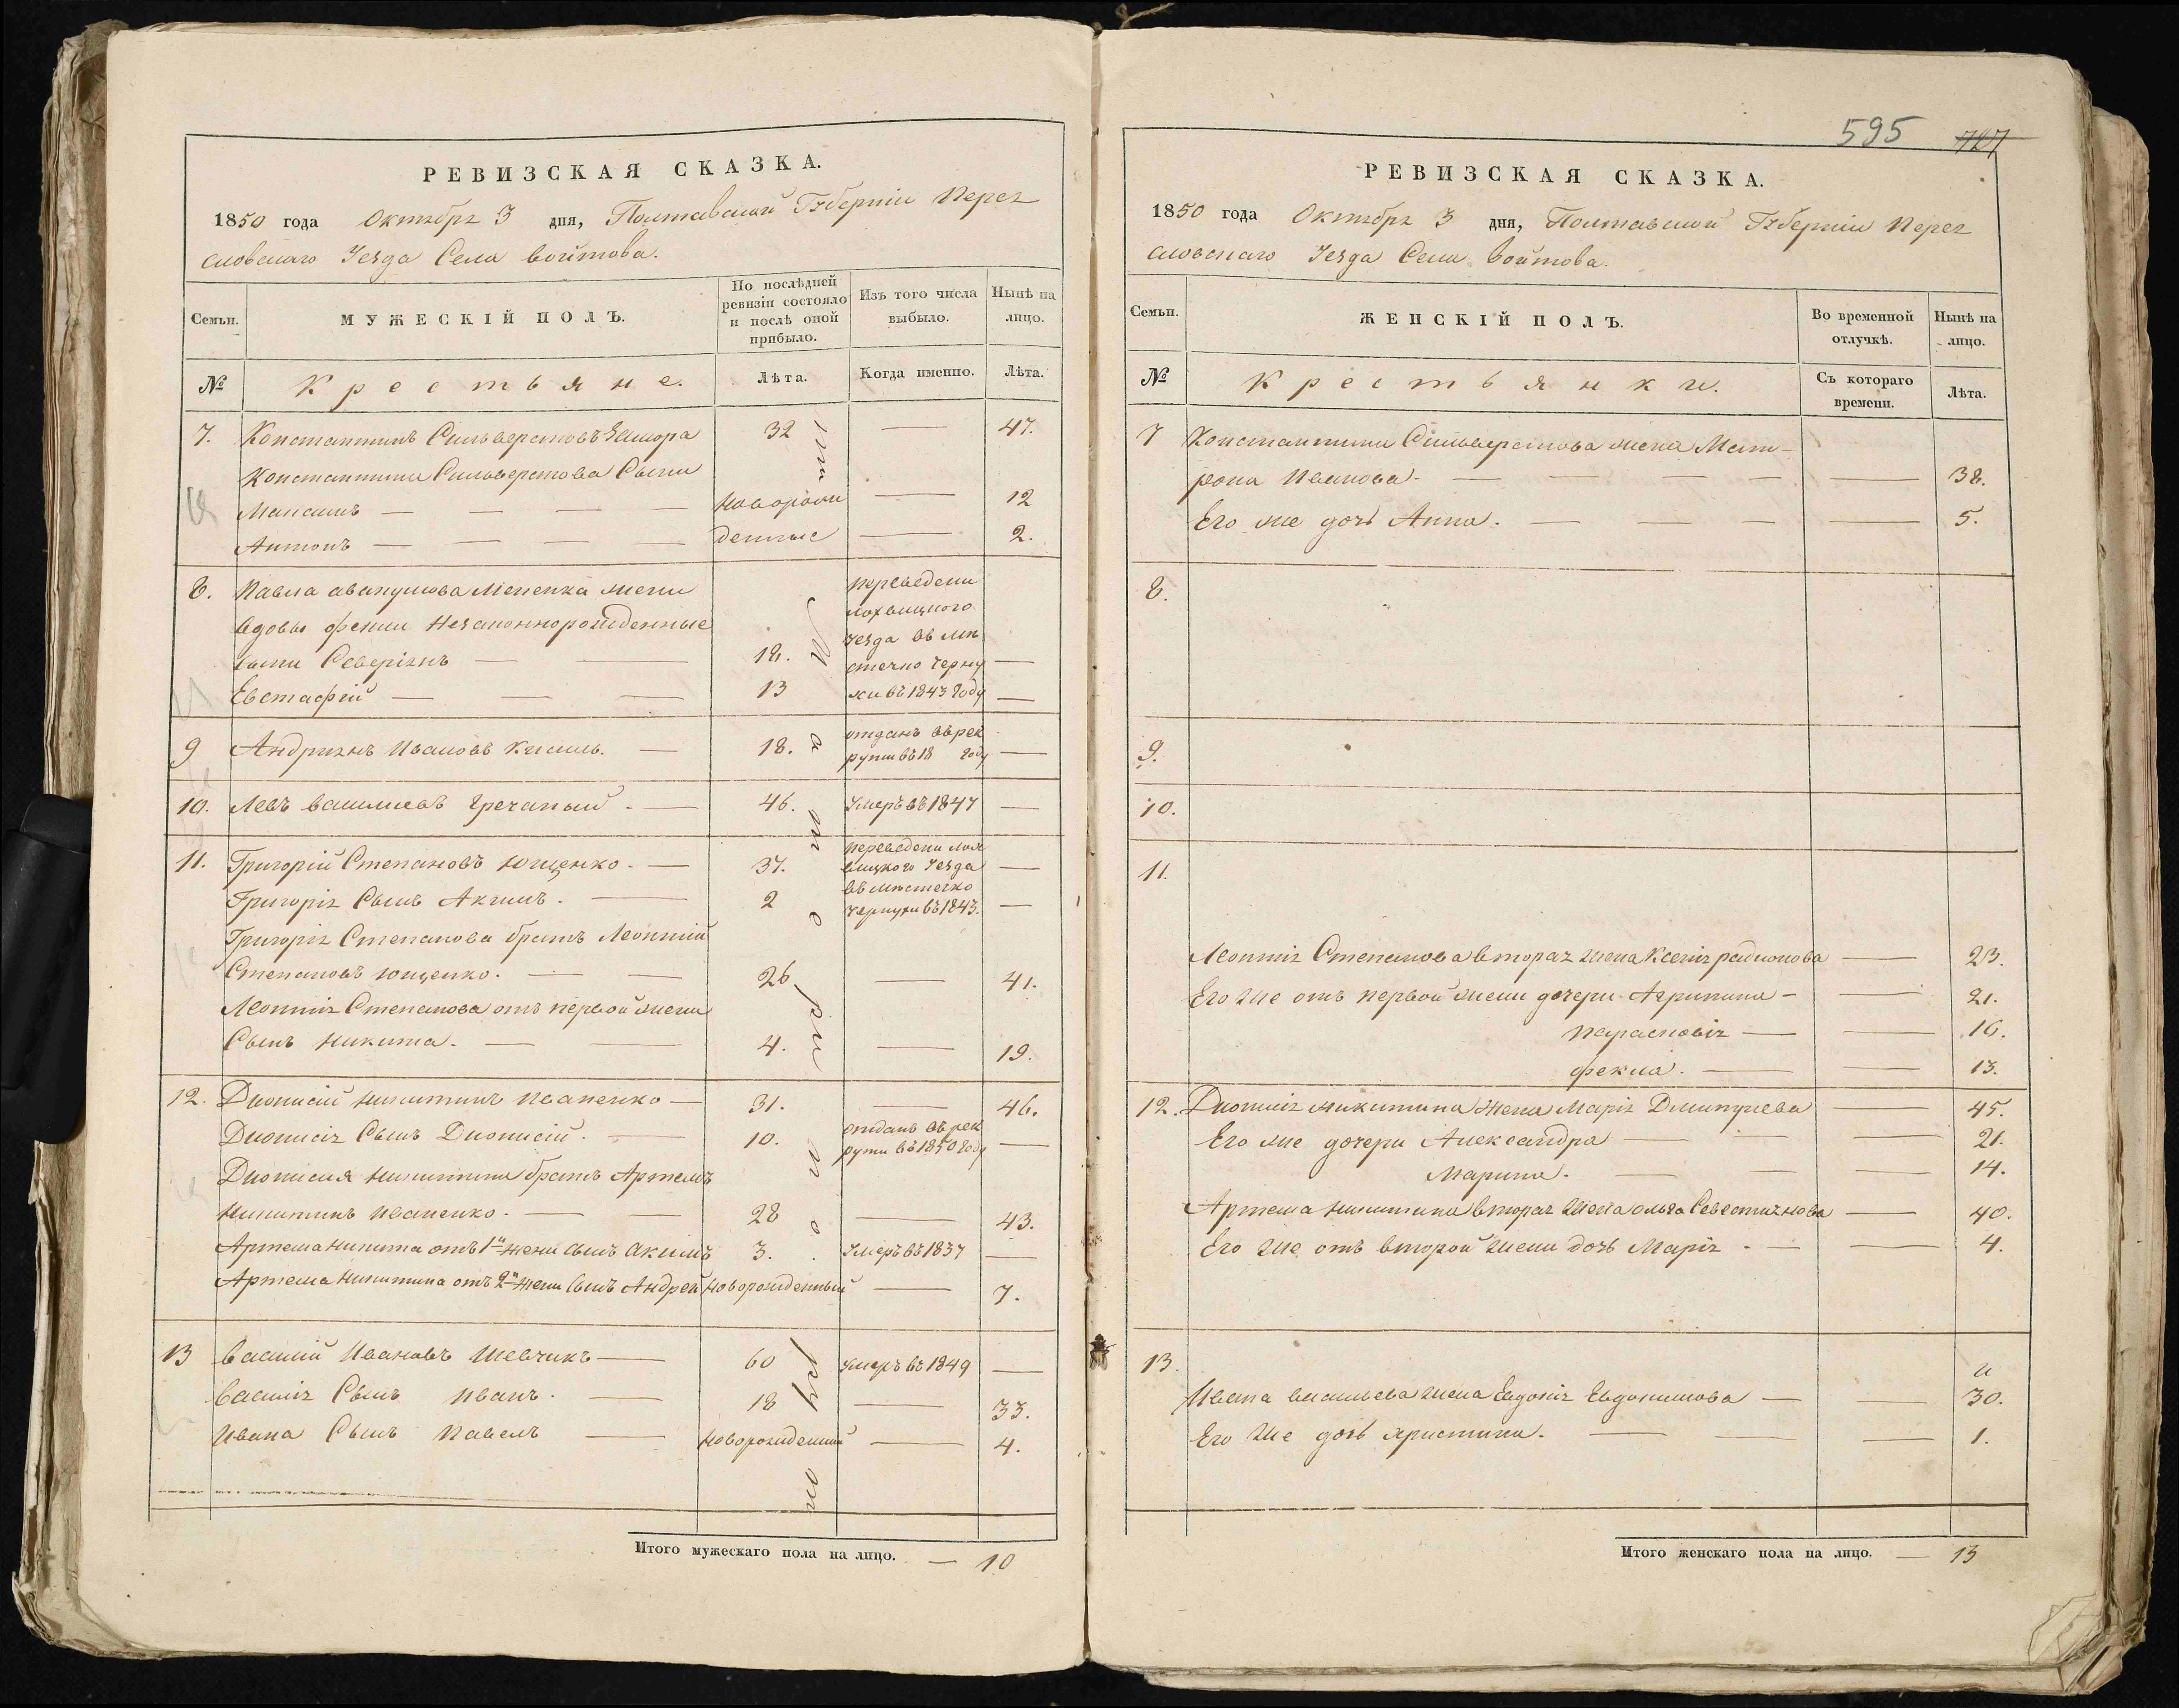 РЕВИЗСКАЯ СКАЗКА.
1850 года Октября 3 дня, Полтавской Губерніи Перея
словскаго Уезда Села Войтова.
Семьи.
МУЖЕСКІЙ ПОЛЪ.
По послѣдней
ревизіи состояло
и послѣ оной
прибыло.
Изъ того числа
выбыло.
Нынѣ на
лицо.
№
Крестьяне.
Лѣта.
Когда именно.
Лѣта.
7. Константинъ Сильверстовъ 32 — 47.
Константина Сильверстова Сыни
Максимъ — — — — Новорож — 12
Антонъ — — — — денные — 2.
8. Павла жени переведени
вдовы незаконнорожденные лохвицкого
сыни Северіянъ — — 18. уезда въ мѣ
стечко Черну —
Евстафій — — — 13 хи въ 1843 году —
9 Андріянъ Ивановъ Кисиль. — 18. отданъ въ рек
рути въ 18 году —
10. Левъ Василиевъ Гречаный. — 46. Умеръ въ 1847 —
11. Григорій Степановъ Ющенко. — 37. переведени лох
вицкого уезда —
въ мѣстечко
Григорія Сынъ Акимъ. — 2 Чернухи въ 1843. —
Григорія Степанова братъ Леонтій
Степановъ Ющенко. — — 26 — 41.
Леонтія Степанова отъ первой жени
Сынъ Никита. — — 4. — 19.
12. Дионисій Никитинъ Иваненко — 31. — 46.
Дионисія Сынъ Дионисій. — 10. отданъ въ рек
рути въ 1850 году —
Дионисия Никитини братъ Артемъ
Никитинъ Иваненко. — — 28 — 43.
Артема Никита отъ 1й жени сынъ Акимъ 3. Умеръ въ 1837 —
Артема Никитина отъ 2й жени Сынъ Андрей Новорожденный — 7.
13 Василій Ивановъ Шевчикъ — 60 Умеръ въ 1849 —
Василія Сынъ Иванъ. — 18 — 33.
Ивана Сынъ Павелъ — Новорожденний — 4.
Итого мужескаго пола на лицо. — 10
595 727
РЕВИЗСКАЯ СКАЗКА.
1850 года Октября 3 дня, Полтавской Губерніи Перея
словскаго Уезда Села Войтова.
Семьи.
ЖЕНСКІЙ ПОЛЪ.
Во временной
отлучкѣ.
Нынѣ на
лицо.
№
Крестьянки.
Съ котораго
времени.
Лѣта.
7 Константина Сильверстова жена Мат-
рона Иванова. — — — — — 38.
Его же дочь Анна. — — — — 5.
8.
9.
10.
11.
Леонтія Степанова вторая жена Ксенія Радионова — 23.
Его же отъ первой жени дочери Агрипина — — 21.
Парасковія — — 16.
Фекла. — — 13.
12. Дионисія Никитина жена Марія Дмитриева — 45.
Его же дочери Александра — — — 21.
Марина. — — — 14.
Артема Никитина вторая жена Ольга Севастиянова — 40.
Его же отъ второй жени дочь Марія. — — 4.
13.
Ивана Васильева жена Евдокія Евдокимова — — 30.
Его же дочь Христина. — — — 1.
Итого женскаго пола на лицо. — 13